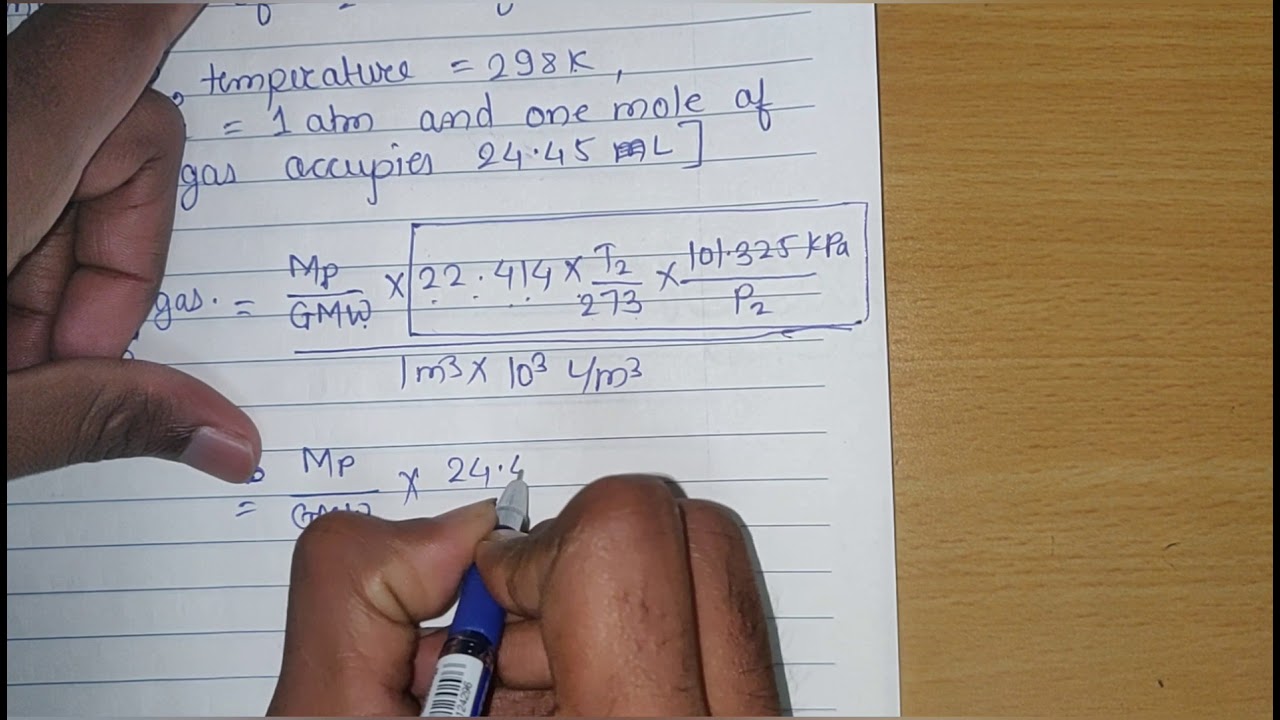 temperature = 298K,
= 1 atm and one mole of
gas occupies 24.45 L]
gas. = Mp/GMW × 22.414 × T2/273 × 101.325 KPa/P2
1m³ × 10³ L/m³
= Mp/GMW × 24.4
124296